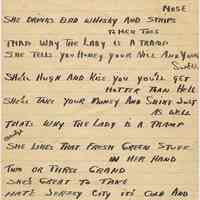 NOSE
SHE DRINKS BAD WHISKY AND STRIPS
TO HER TOES
THAD WHY THE LADY IS A TRAMP
SHE TELLS YOU HONEY YOUR NICE AND YOUNG
SWELL
SHE'LL HUGH AND KISS YOU YOU'LL GET
HOTTER THAN HELL
SHE'LL TAKE YOUR MONEY AND SHIRT JUST
AS WELL
THATS WHY THE LADY IS A TRAMP
SHE LIKES THAT FRESH GREEN STUFF
IN HER HAND
TWO OR THREE GRAND
SHE'S GREAT TO TAKE
HATE JERSEY CITY IT'S COLD AND